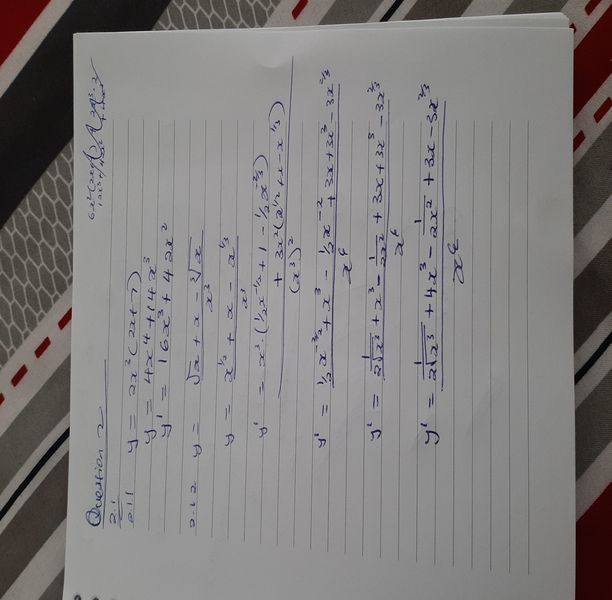 Question 2
2.1
2.1.1 y = 2x³(2x+7)
y = 4x⁴ + 14x³
y' = 16x³ + 42x²
2.1.2 y = √x + x - ³√x / x³
y = x^1/2 + x - x^1/3 / x³
y' = x³·(1/2x^-1/2 + 1 - 1/2x^-2/3)
+ 3x²(x^1/2 + x - x^1/3)
(x³)²
y' = 1/2x^-3/2 + x³ - 1/2x^-2 + 3x + 3x³ - 3x^2/3 / x⁶
y' = 1/2√x³ + x³ - 1/2x² + 3x + 3x³ - 3x^2/3 / x⁶
y' = 1/2√x³ + 4x³ - 1/2x² + 3x - 3x^2/3 / x⁶